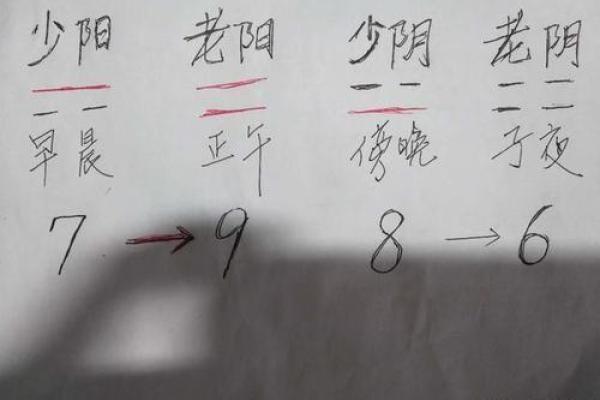 少阳 老阳 少阴 老阴
早晨 正午 傍晚 子夜
7 → 9 8 → 6